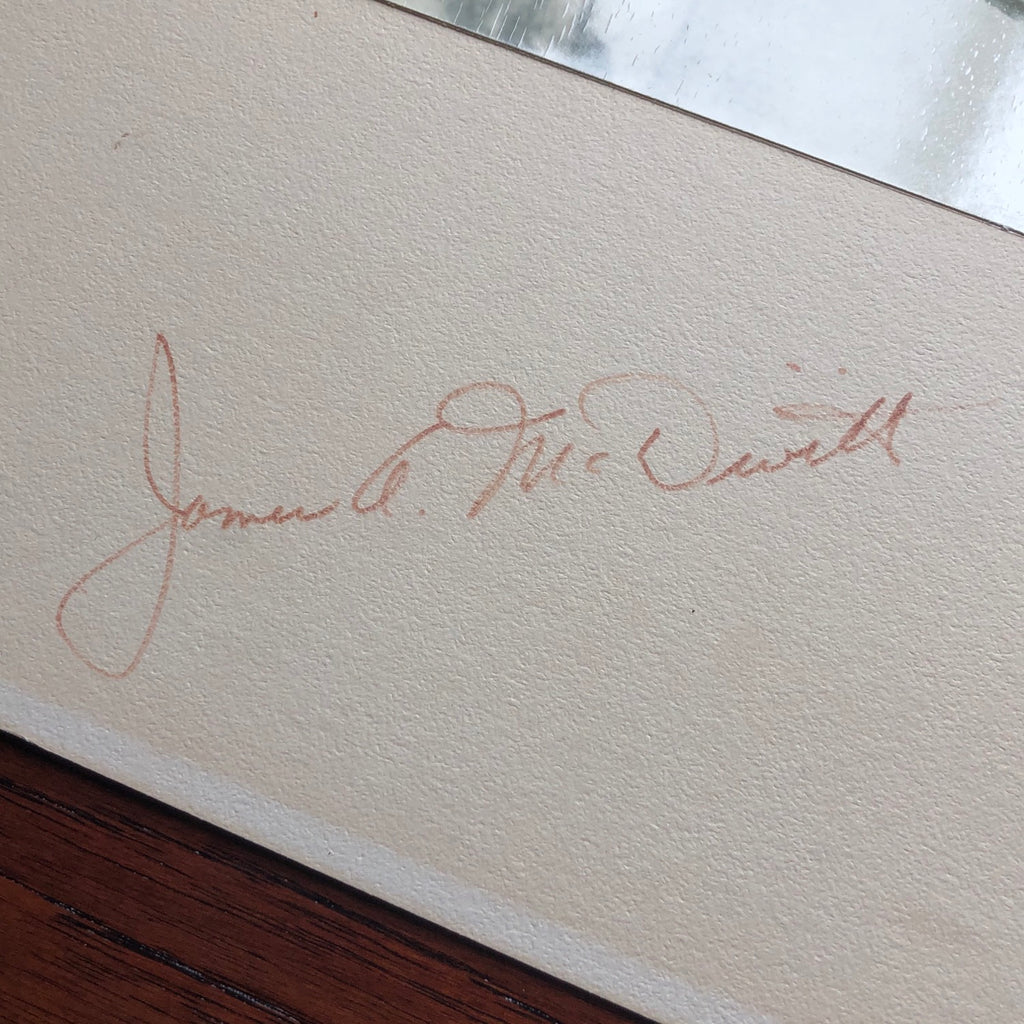 James A. McDivitt